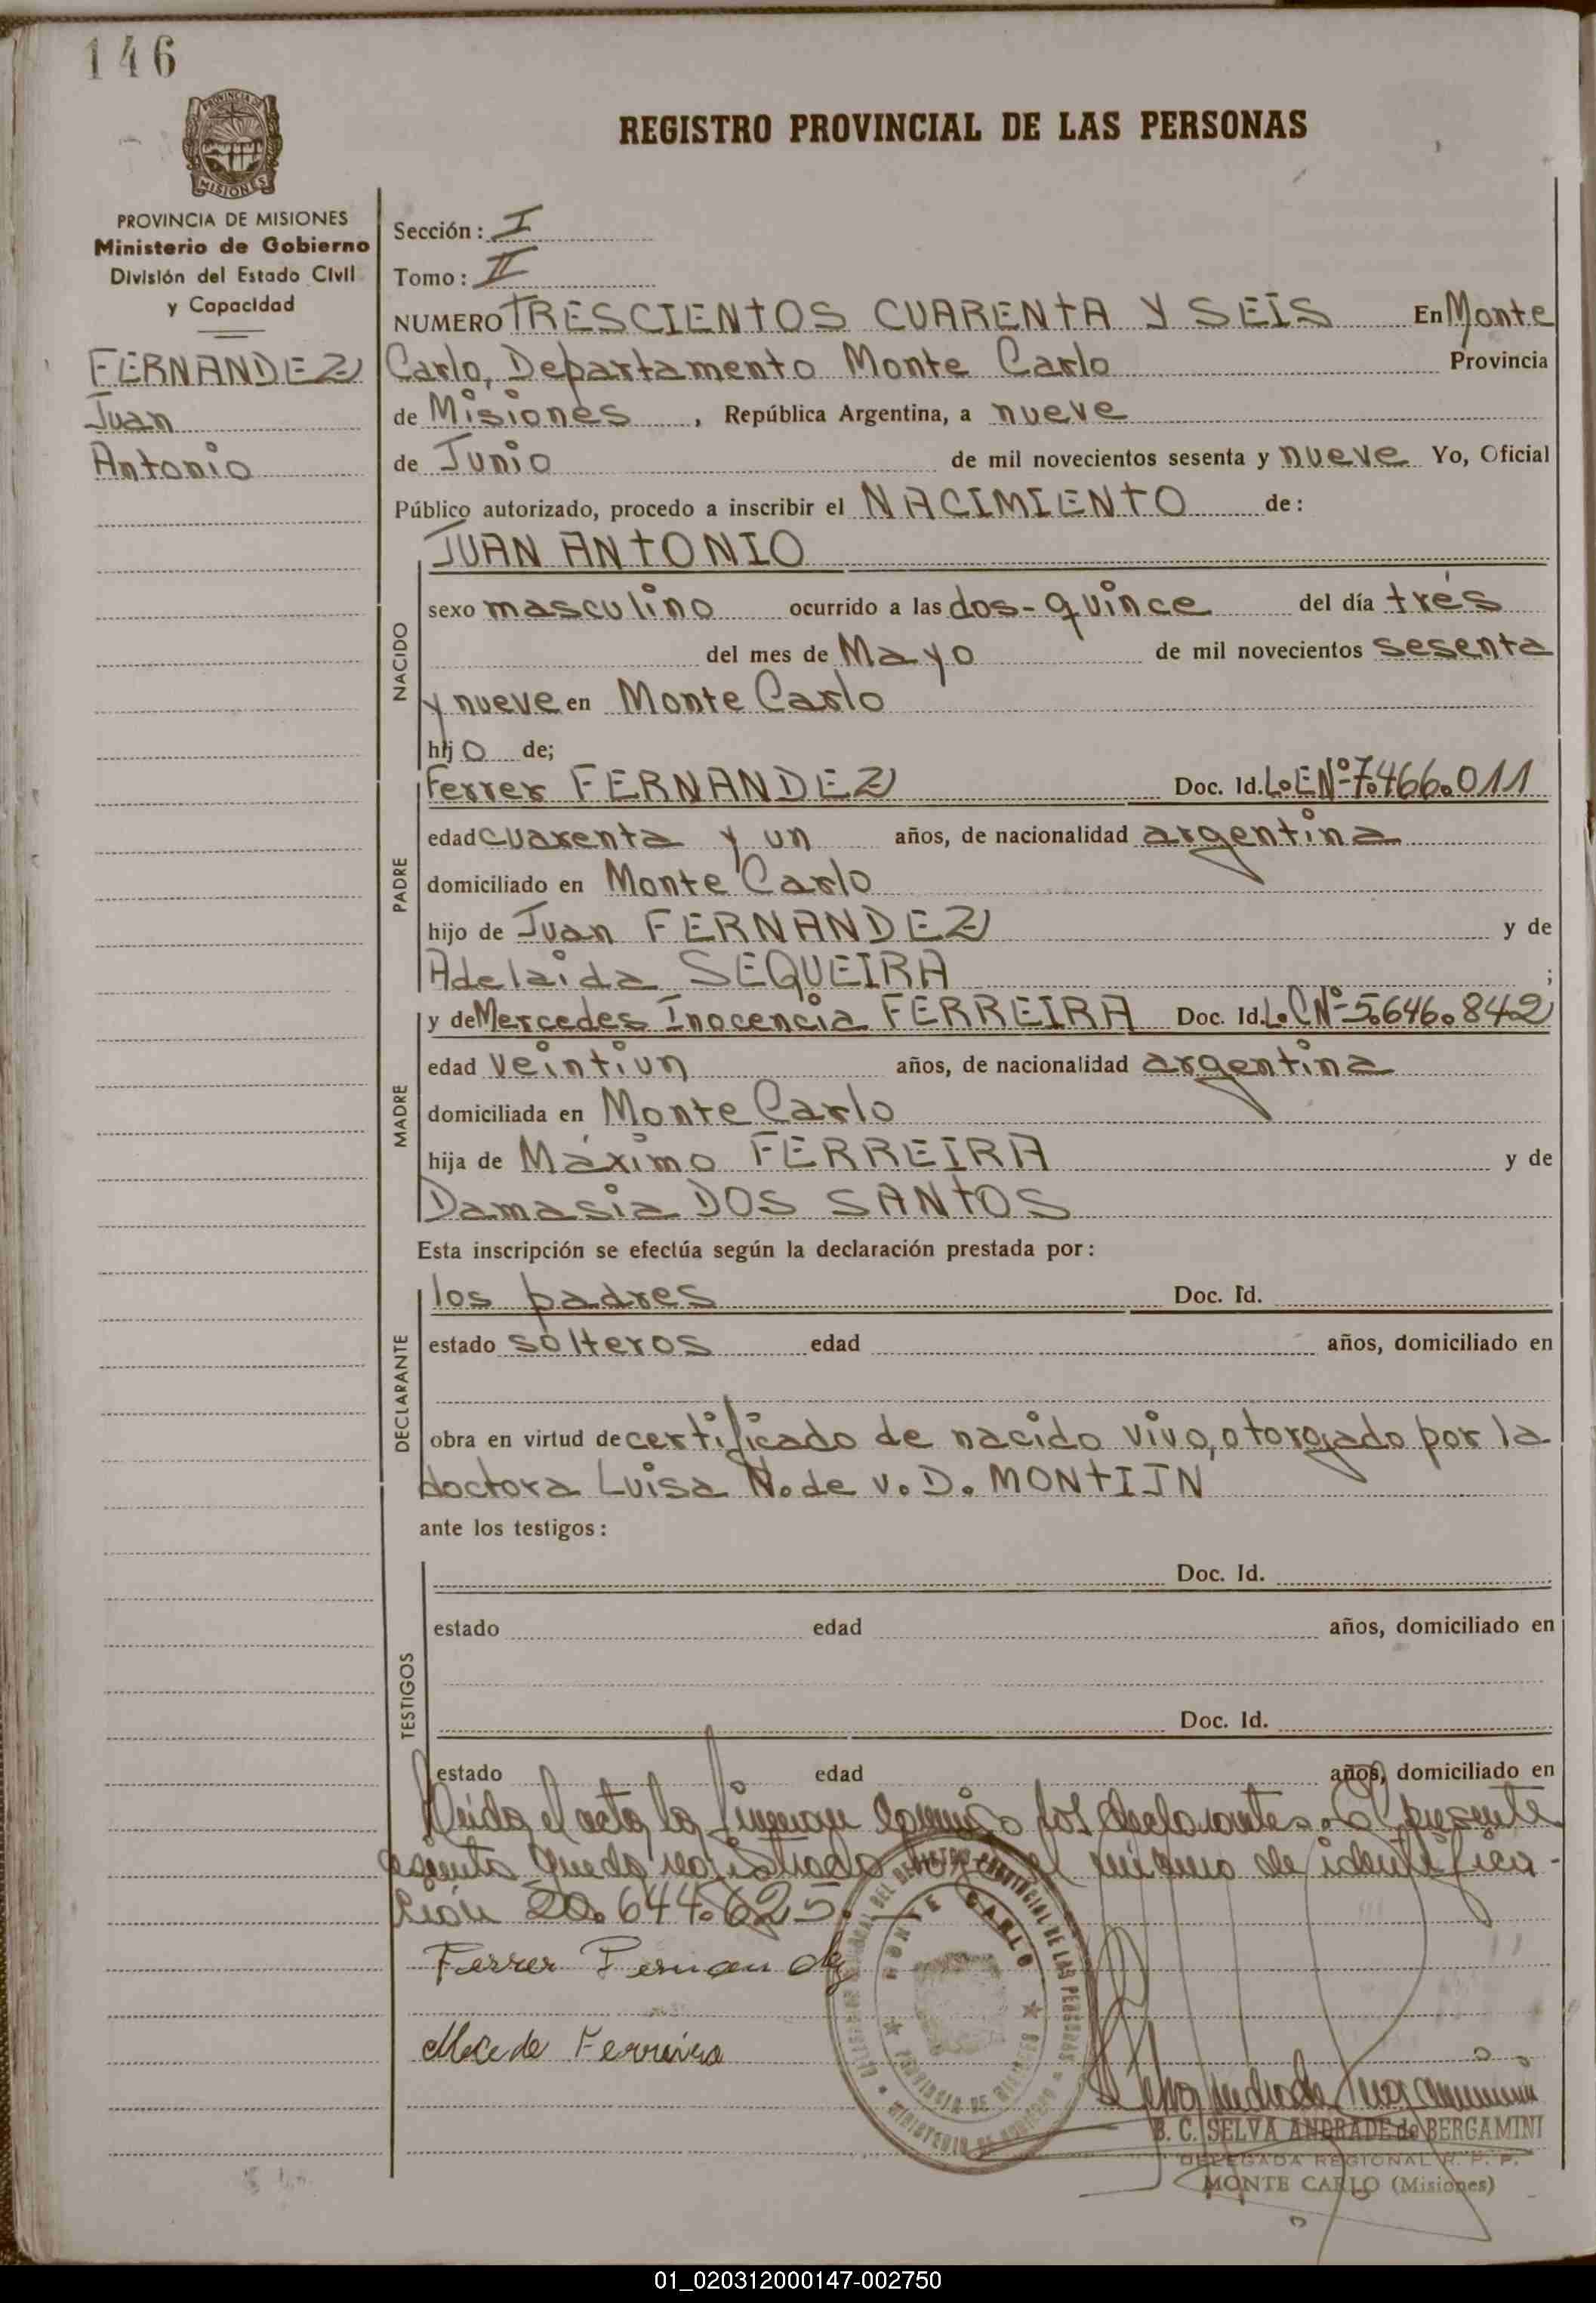 146
PROVINCIA DE
MISIONES
REGISTRO PROVINCIAL DE LAS PERSONAS
PROVINCIA DE MISIONES
Ministerio de Gobierno
División del Estado Civil
y Capacidad
FERNANDEZ
Juan
Antonio
Sección: I
Tomo: II
NUMERO TRESCIENTOS CUARENTA Y SEIS En Monte
Carlo, Departamento Monte Carlo Provincia
de Misiones, República Argentina, a nueve
de Junio de mil novecientos sesenta y nueve Yo, Oficial
Público autorizado, procedo a inscribir el NACIMIENTO de:
JUAN ANTONIO
NACIDO
sexo masculino ocurrido a las dos-quince del día tres
del mes de Mayo de mil novecientos sesenta
y nueve en Monte Carlo
hijo de;
PADRE
Ferrer FERNANDEZ Doc. Id. L.E Nº 7.466.011
edad cuarenta y un años, de nacionalidad argentina
domiciliado en Monte Carlo
hijo de Juan FERNANDEZ y de
Adelaida SEQUEIRA ;
MADRE
y de Mercedes Inocencia FERREIRA Doc. Id. L.C Nº 5.646.842
edad veintiun años, de nacionalidad argentina
domiciliada en Monte Carlo
hija de Máximo FERREIRA y de
Damasia DOS SANTOS
Esta inscripción se efectúa según la declaración prestada por:
DECLARANTE
los padres Doc. Id.
estado solteros edad años, domiciliado en
obra en virtud de certificado de nacido vivo, otorgado por la
doctora Luisa N. de v. D. MONTIJN
ante los testigos:
TESTIGOS
Doc. Id.
estado edad años, domiciliado en
Doc. Id.
estado edad años, domiciliado en
Leida el acta, la firman conmigo los declarantes. El presente
asiento queda registrado bajo el número de identifica-
ción 20.644.625.
Ferrer Fernandez
Ferreira
MONTE CARLO
PROVINCIA DE MISIONES
MINISTERIO DE GOBIERNO
B. C. SELVA ANDRADE de BERGAMINI
DELEGADA REGIONAL R. P. P.
MONTE CARLO (Misiones)
01_020312000147-002750